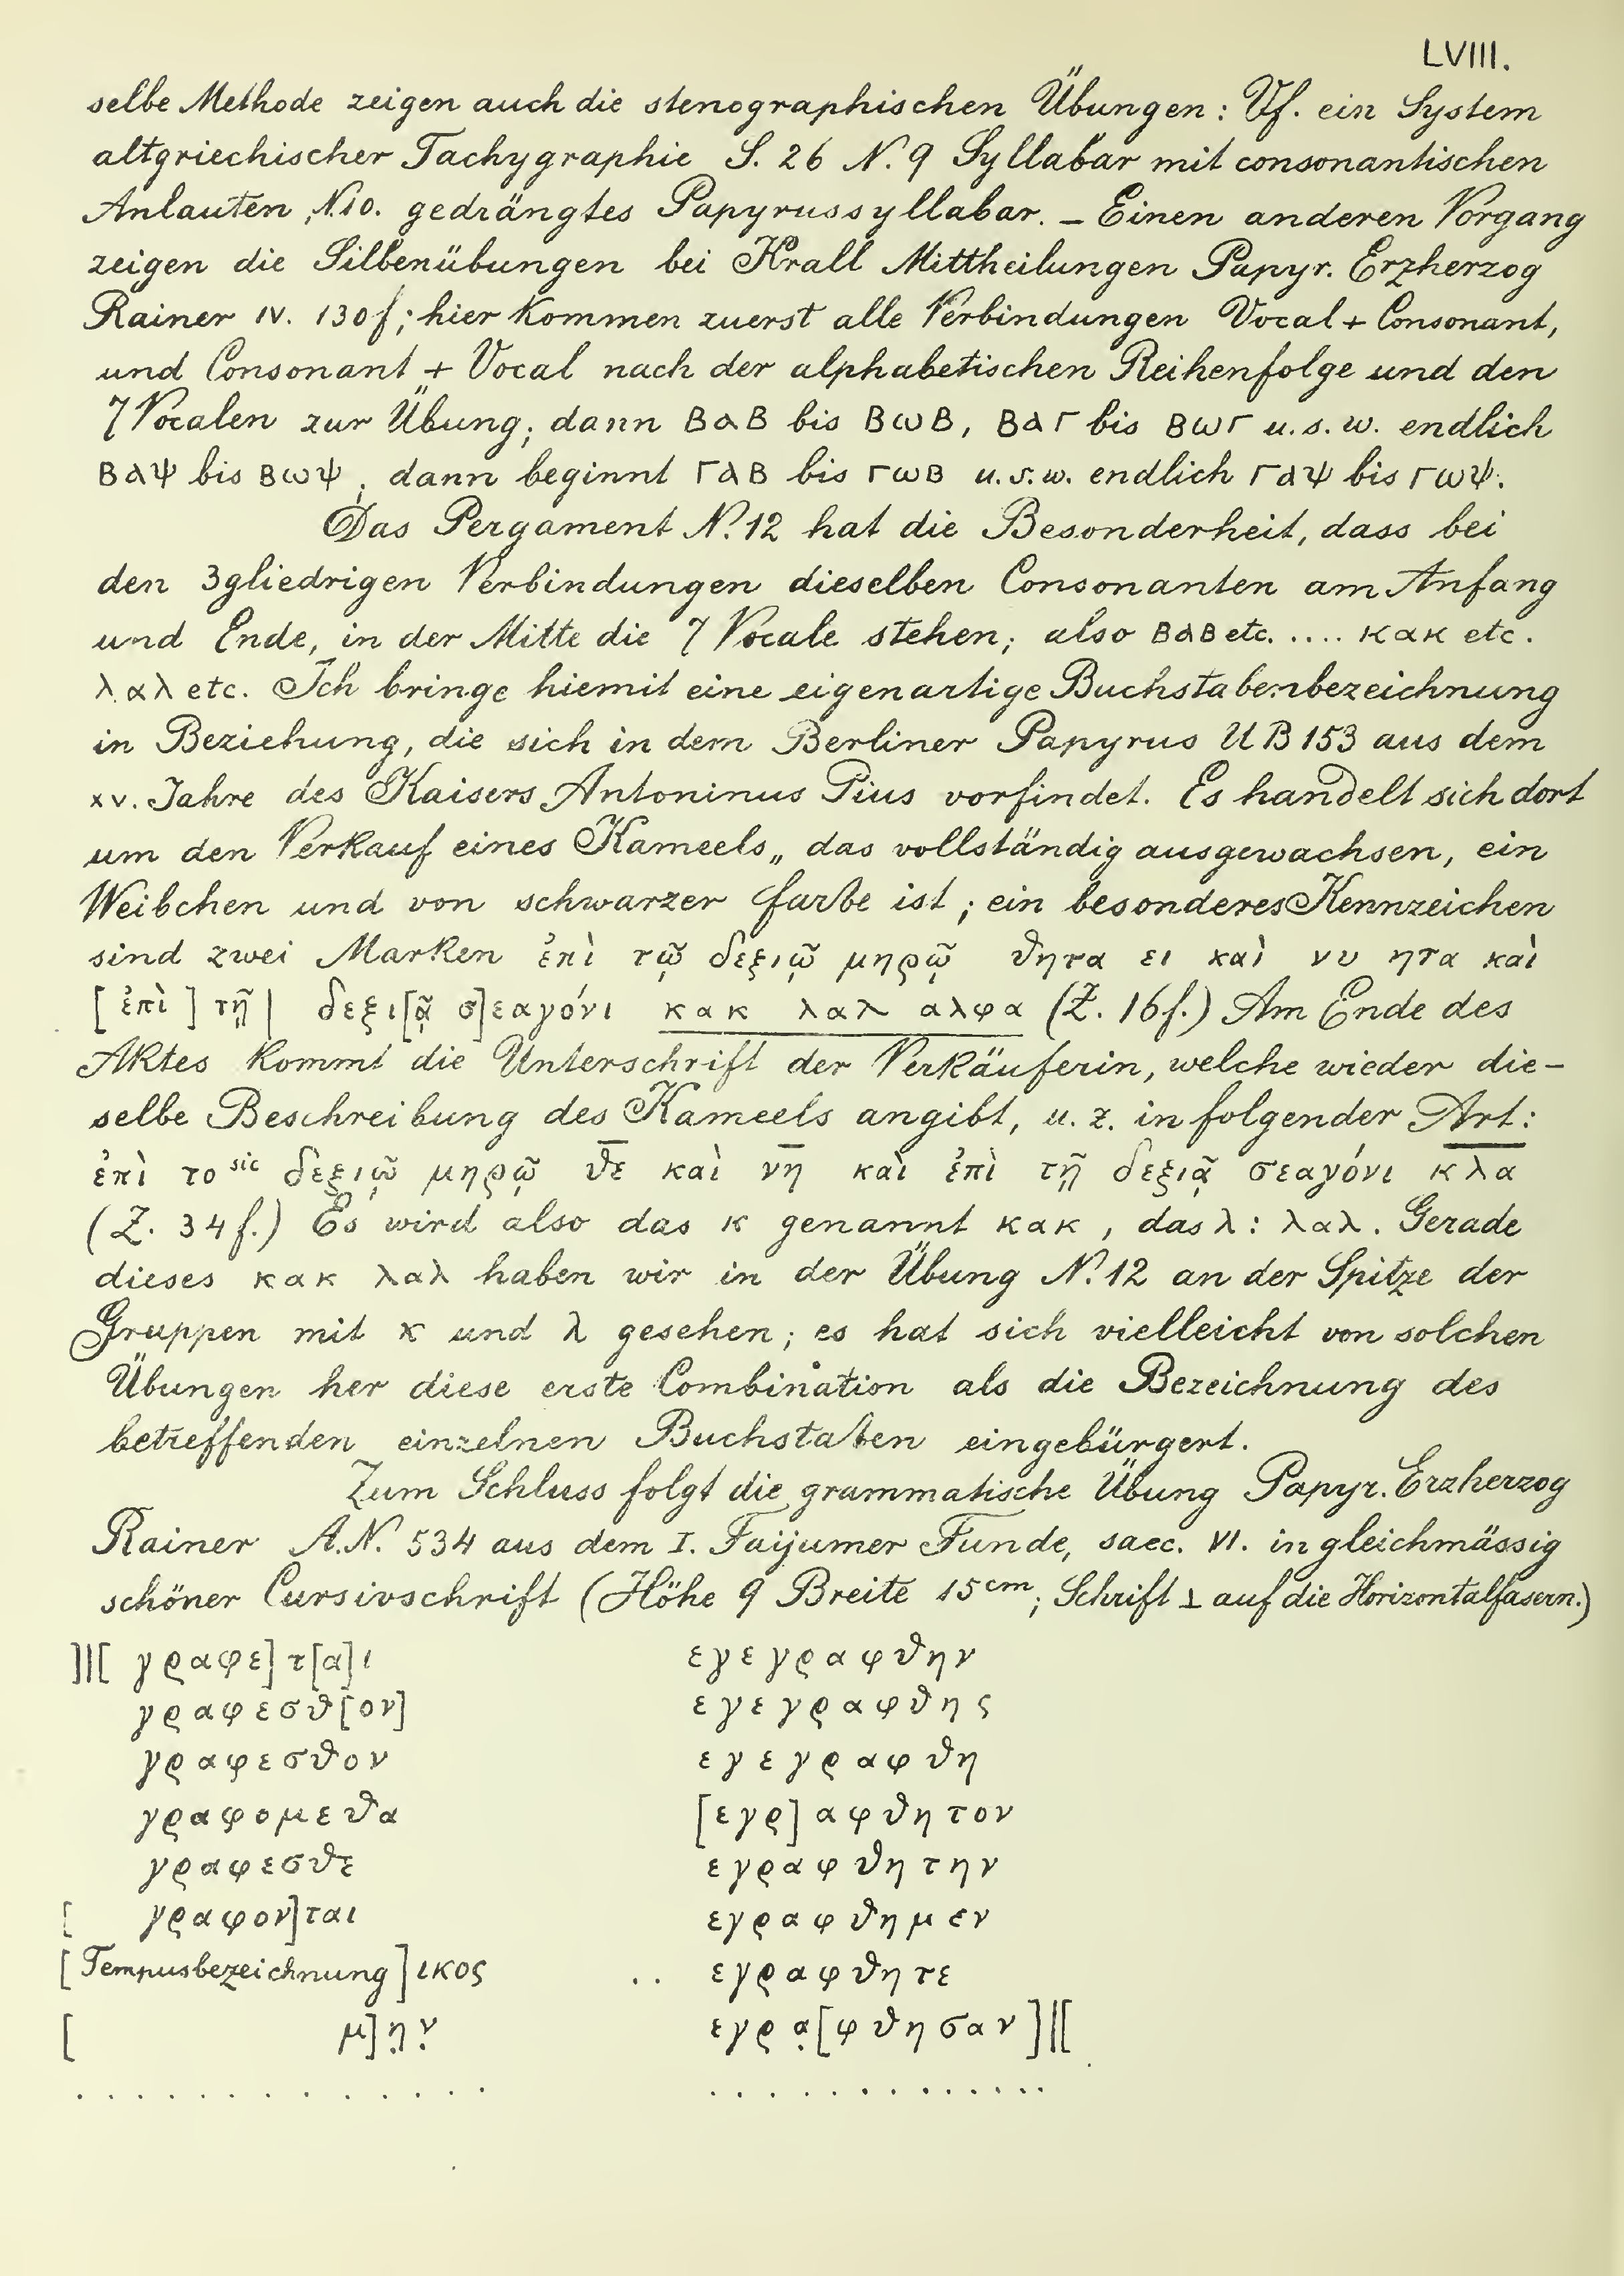 LVIII.
selbe Methode zeigen auch die stenographischen Übungen: Vf. ein System
altgriechischer Tachygraphie S. 26 N. 9 Syllabar mit consonantischen
Anlauten, N.10. gedrängtes Papyrussyllabar. – Einen anderen Vorgang
zeigen die Silbenübungen bei Krall Mittheilungen Papyr. Erzherzog
Rainer IV. 130f; hier kommen zuerst alle Verbindungen Vocal + Consonant,
und Consonant + Vocal nach der alphabetischen Reihenfolge und den
7 Vocalen zur Übung; dann ΒαΒ bis ΒωΒ, ΒαΓ bis ΒωΓ u.s.w. endlich
ΒαΨ bis ΒωΨ; dann beginnt ΓαΒ bis ΓωΒ u.s.w. endlich ΓαΨ bis ΓωΨ.
Das Pergament N. 12 hat die Besonderheit, dass bei
den 3gliedrigen Verbindungen dieselben Consonanten am Anfang
und Ende, in der Mitte die 7 Vocale stehen; also ΒαΒ etc. .... κακ etc.
λαλ etc. Ich bringe hiemit eine eigenartige Buchstabenbezeichnung
in Beziehung, die sich in dem Berliner Papyrus UB 153 aus dem
XV. Jahre des Kaisers Antoninus Pius vorfindet. Es handelt sich dort
um den Verkauf eines Kameels „ das vollständig ausgewachsen, ein
Weibchen und von schwarzer Farbe ist; ein besonderes Kennzeichen
sind zwei Marken ἐπὶ τῷ δεξιῷ μηρῷ θητα ει καὶ νυ ητα καὶ
[ἐπὶ] τῇ| δεξι[ᾷ σ]εαγόνι κακ λαλ αλφα (Z. 16f.) Am Ende des
Aktes kommt die Unterschrift der Verkäuferin, welche wieder die-
selbe Beschreibung des Kameels angibt, u. z. in folgender Art:
ἐπὶ το sic δεξιῷ μηρῷ θ̅ε̅ καὶ ν̅η̅ καὶ ἐπὶ τῇ δεξιᾷ σεαγόνι κ̅λ̅α̅
(Z. 34f.) Es wird also das κ genannt κακ, das λ: λαλ. Gerade
dieses κακ λαλ haben wir in der Übung N. 12 an der Spitze der
Gruppen mit κ und λ gesehen; es hat sich vielleicht von solchen
Übungen her diese erste Combination als die Bezeichnung des
betreffenden einzelnen Buchstaben eingebürgert.
Zum Schluss folgt die grammatische Übung Papyr. Erzherzog
Rainer A.N. 534 aus dem I. Faijumer Funde, saec. VI. in gleichmässig
schöner Cursivschrift (Höhe 9 Breite 15cm; Schrift ⊥ auf die Horizontalfasern.)
]|[ γραφε]τ[α]ι
γραφεσθ[ον]
γραφεσθον
γραφομεθα
γραφεσθε
[ γραφον]ται
[Tempusbezeichnung]ικος
[ μ]η̣ν̣
. . . . . . . . . . . . .
εγεγραφθην
εγεγραφθης
εγεγραφθη
[εγρ]αφθητον
εγραφθητην
εγραφθημεν
.. εγραφθητε
εγρα̣[φθησαν]|[
. . . . . . . . . . . . .